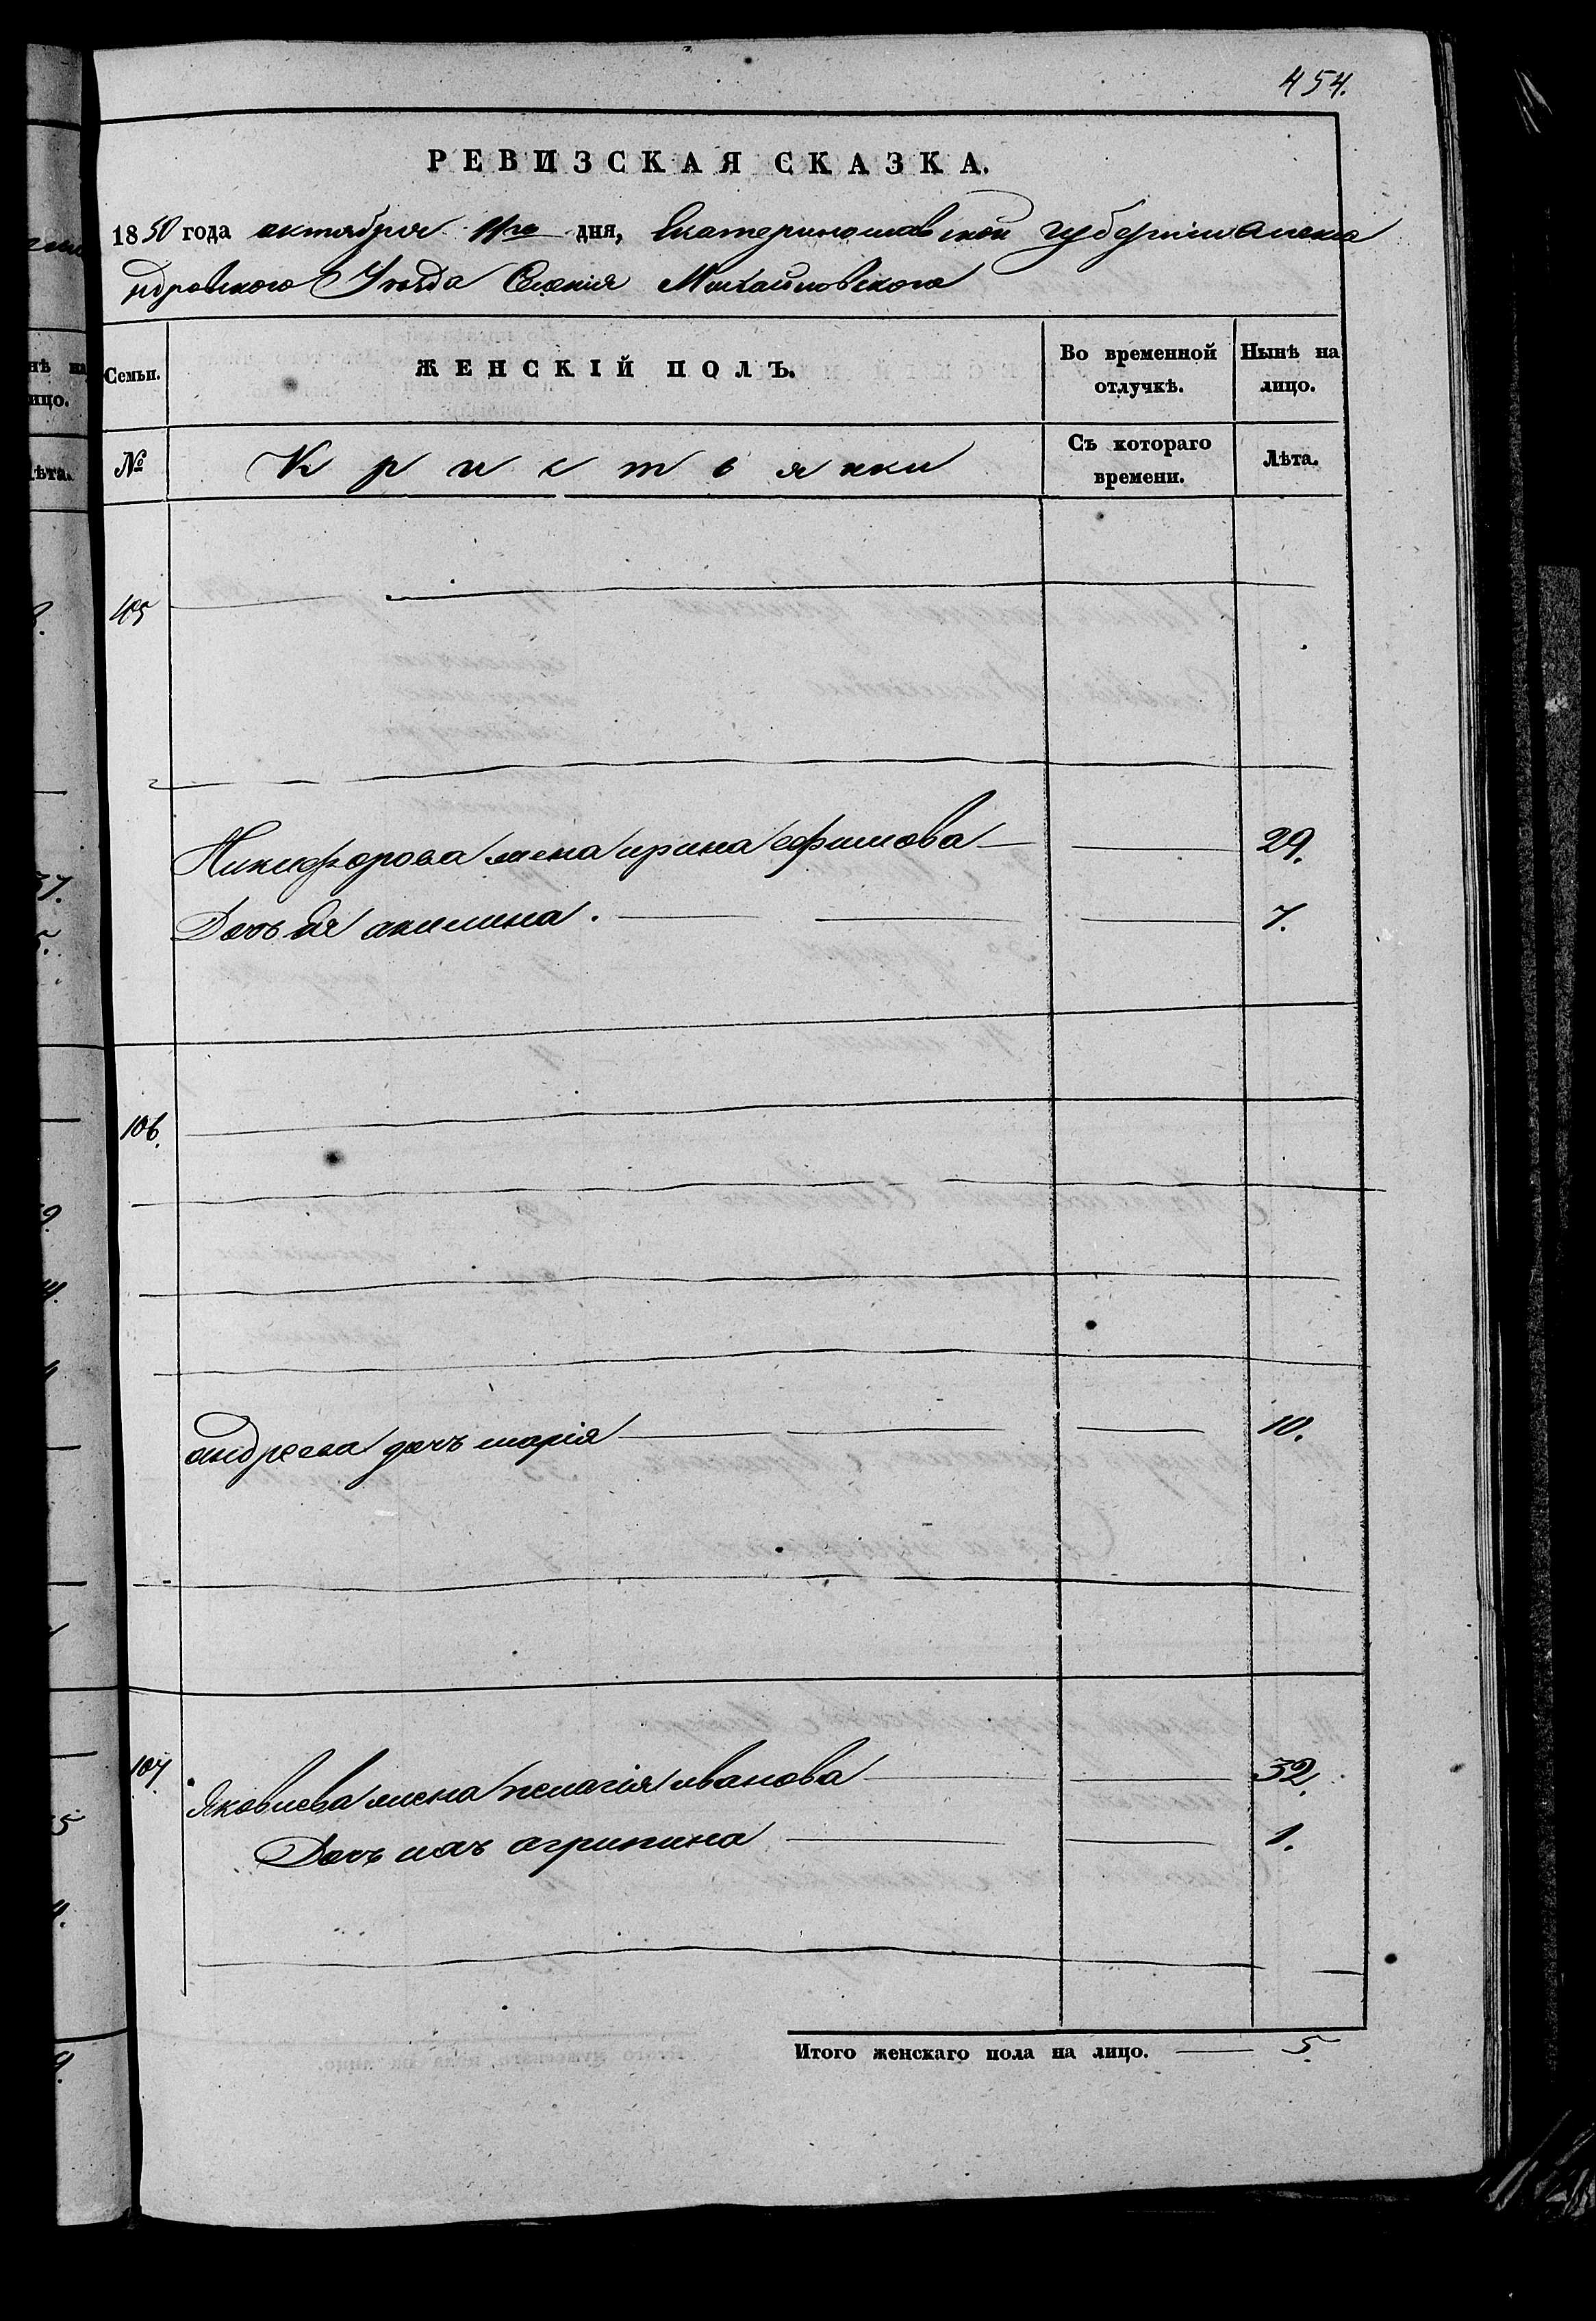 454.
РЕВИЗСКАЯ СКАЗКА.
1850 года октября 11го дня, Екатеринославской губерніи Алекса
ндровского Уѣзда Селенія Михайловского
Семьи. ЖЕНСКІЙ ПОЛЪ. Во временной отлучкѣ. Нынѣ на лицо.
№ Кристьянки Съ котораго времени. Лѣта.
105
Никифорова жена ирина ефимова 29.
Дочь Ея акилина. 7.
106.
андреева дочь марія 10.
107
Яковлева жена пелагія иванова 32.
Дочь ихъ агрипина 1.
Итого женскаго пола на лицо. 5.